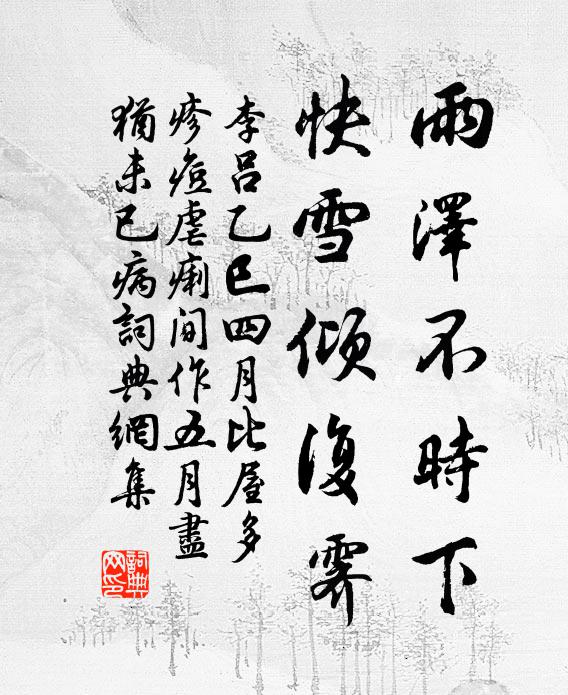 雨澤不時下
快雪傾復霽
李呂乙巳四月比屋多
疹痘虐痢間作五月盡
猶未已病詞典網集
詞典網印